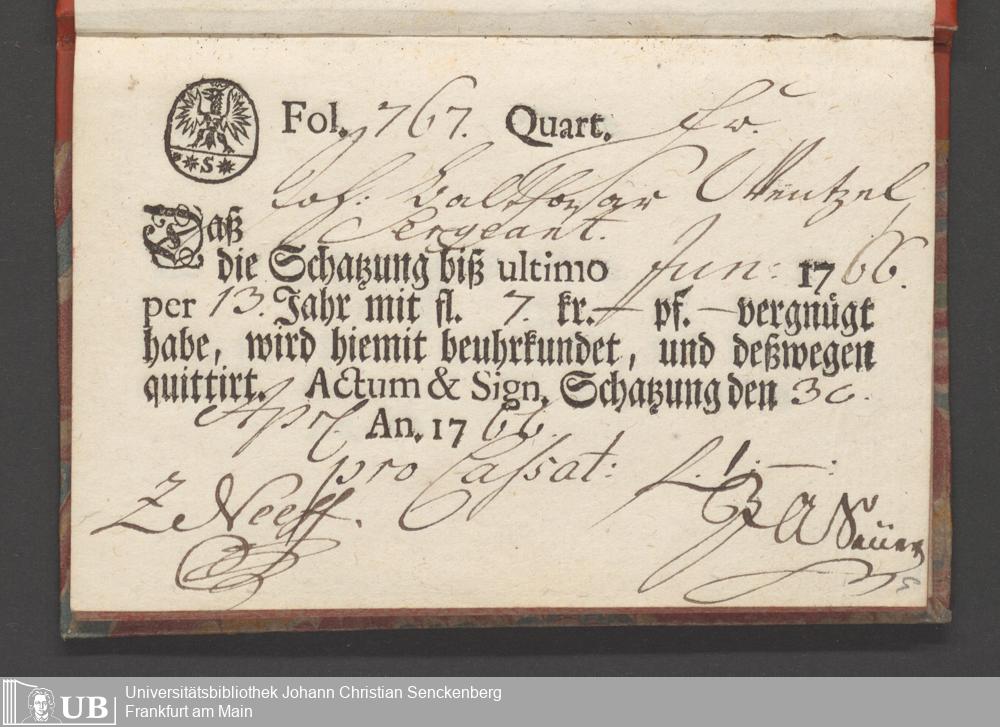 Fol. 767. Quart. Hr.
Joh: Balthasar Wentzel
Sergeant.
Daß
die Schatzung biß ultimo Jun: 1766.
per 13. Jahr mit fl. 7. kr. — pf. — vergnügt
habe, wird hiemit beuhrkundet, und deßwegen
quittirt. Actum & Sign. Schatzung den 30.
Apr. An. 1766.
pro Cassat: f. 1. —:
Z Neeff.
S
Universitätsbibliothek Johann Christian Senckenberg
Frankfurt am Main
UB